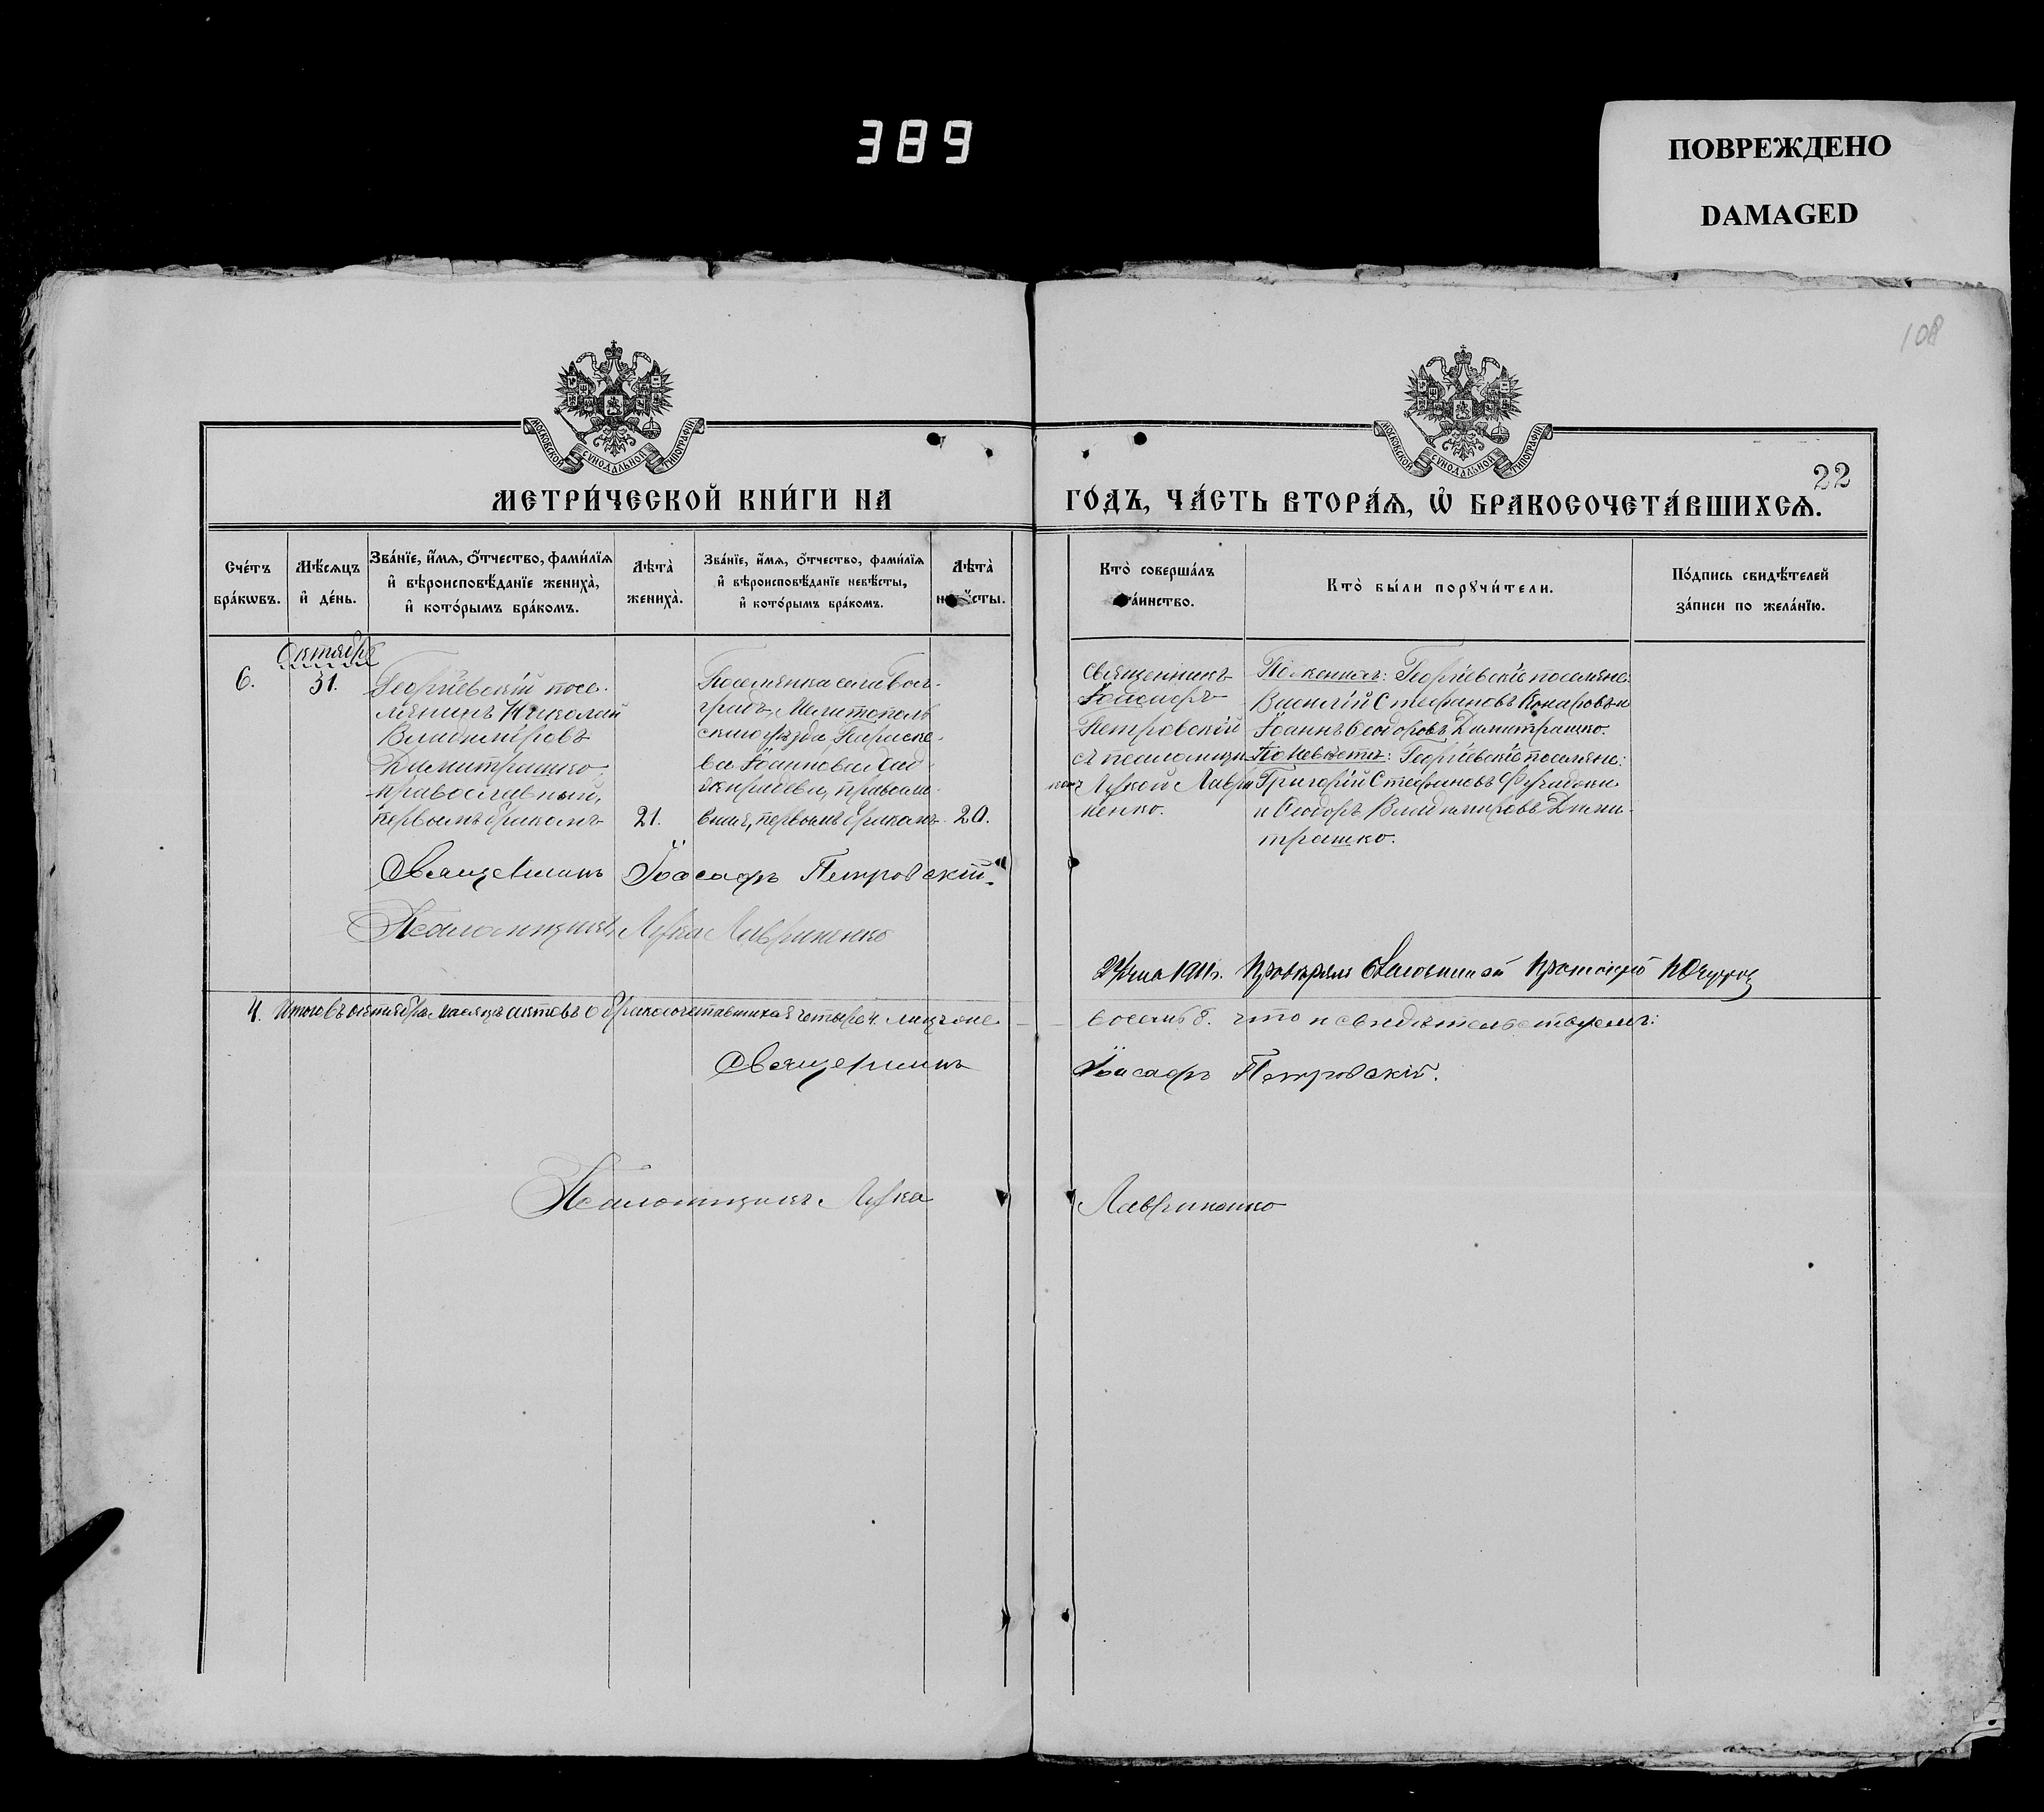 389
ПОВРЕЖДЕНО
DAMAGED
108
МОСКОВСКОЙ СУНОДАЛЬНОЙ ТИПОГРАФІИ
МОСКОВСКОЙ СУНОДАЛЬНОЙ ТИПОГРАФІИ
22
МЕТРИ́ЧЕСКОЙ КНИ́ГИ НА
ГО́ДЪ, ЧА́СТЬ ВТОРА́Я, Ѿ БРАКОСОЧЕТА́ВШИХСЯ.
Сче́тъ бра́кѡвъ.
Мѣ́сяцъ и де́нь.
Зва́нїе, и́мя, ѻ́тчество, фами́лїя
и вѣроисповѣ́данїе жениха̀,
и кото́рымъ бра́комъ.
Лѣта̀ жениха̀.
Зва́нїе, и́мя, ѻ́тчество, фами́лїя
и вѣроисповѣ́данїе невѣ́сты,
и кото́рымъ бра́комъ.
Лѣта̀
Кто̀ соверша́лъ
Кто̀ бы́ли порꙋчи́тели.
По́дпись свидѣ́телей
за́писи по жела́нїю.
6.
Октября
31.
Георгіевскій посе-
лянинъ Николай
Владиміровъ
Димитрашко,
православный,
первымъ бракомъ
21.
Поселянка села Бол-
градъ, Мелитополь
скаго уѣзда Параске-
ва Іоаннова
православ-
ная, первымъ бракомъ
20.
Священникъ
Іоасафъ
Петровскій
съ псаломщи
комъ Лукою Лаври
ненко.
По женихѣ: Георгіевскіе поселяне:
Василій Стефановъ Комаровъ и
Іоаннъ Ѳеодоровъ Димитрашко.
По невѣстѣ: Георгіевскіе поселяне:
Григорій Стефановъ
и Ѳеодоръ Владиміровъ Дими-
трашко.
Священникъ Іоасафъ Петровскій.
Псаломщикъ Лука Лавриненко
1911г.
4. Итого въ октябрѣ мѣсяцѣ актовъ о бракосочетавшихся четыре 4. лицъ оне
восемь 8. что и свидѣтельствуемъ:
Священникъ Іоасафъ Петровскій.
Псаломщикъ Лука Лавриненко